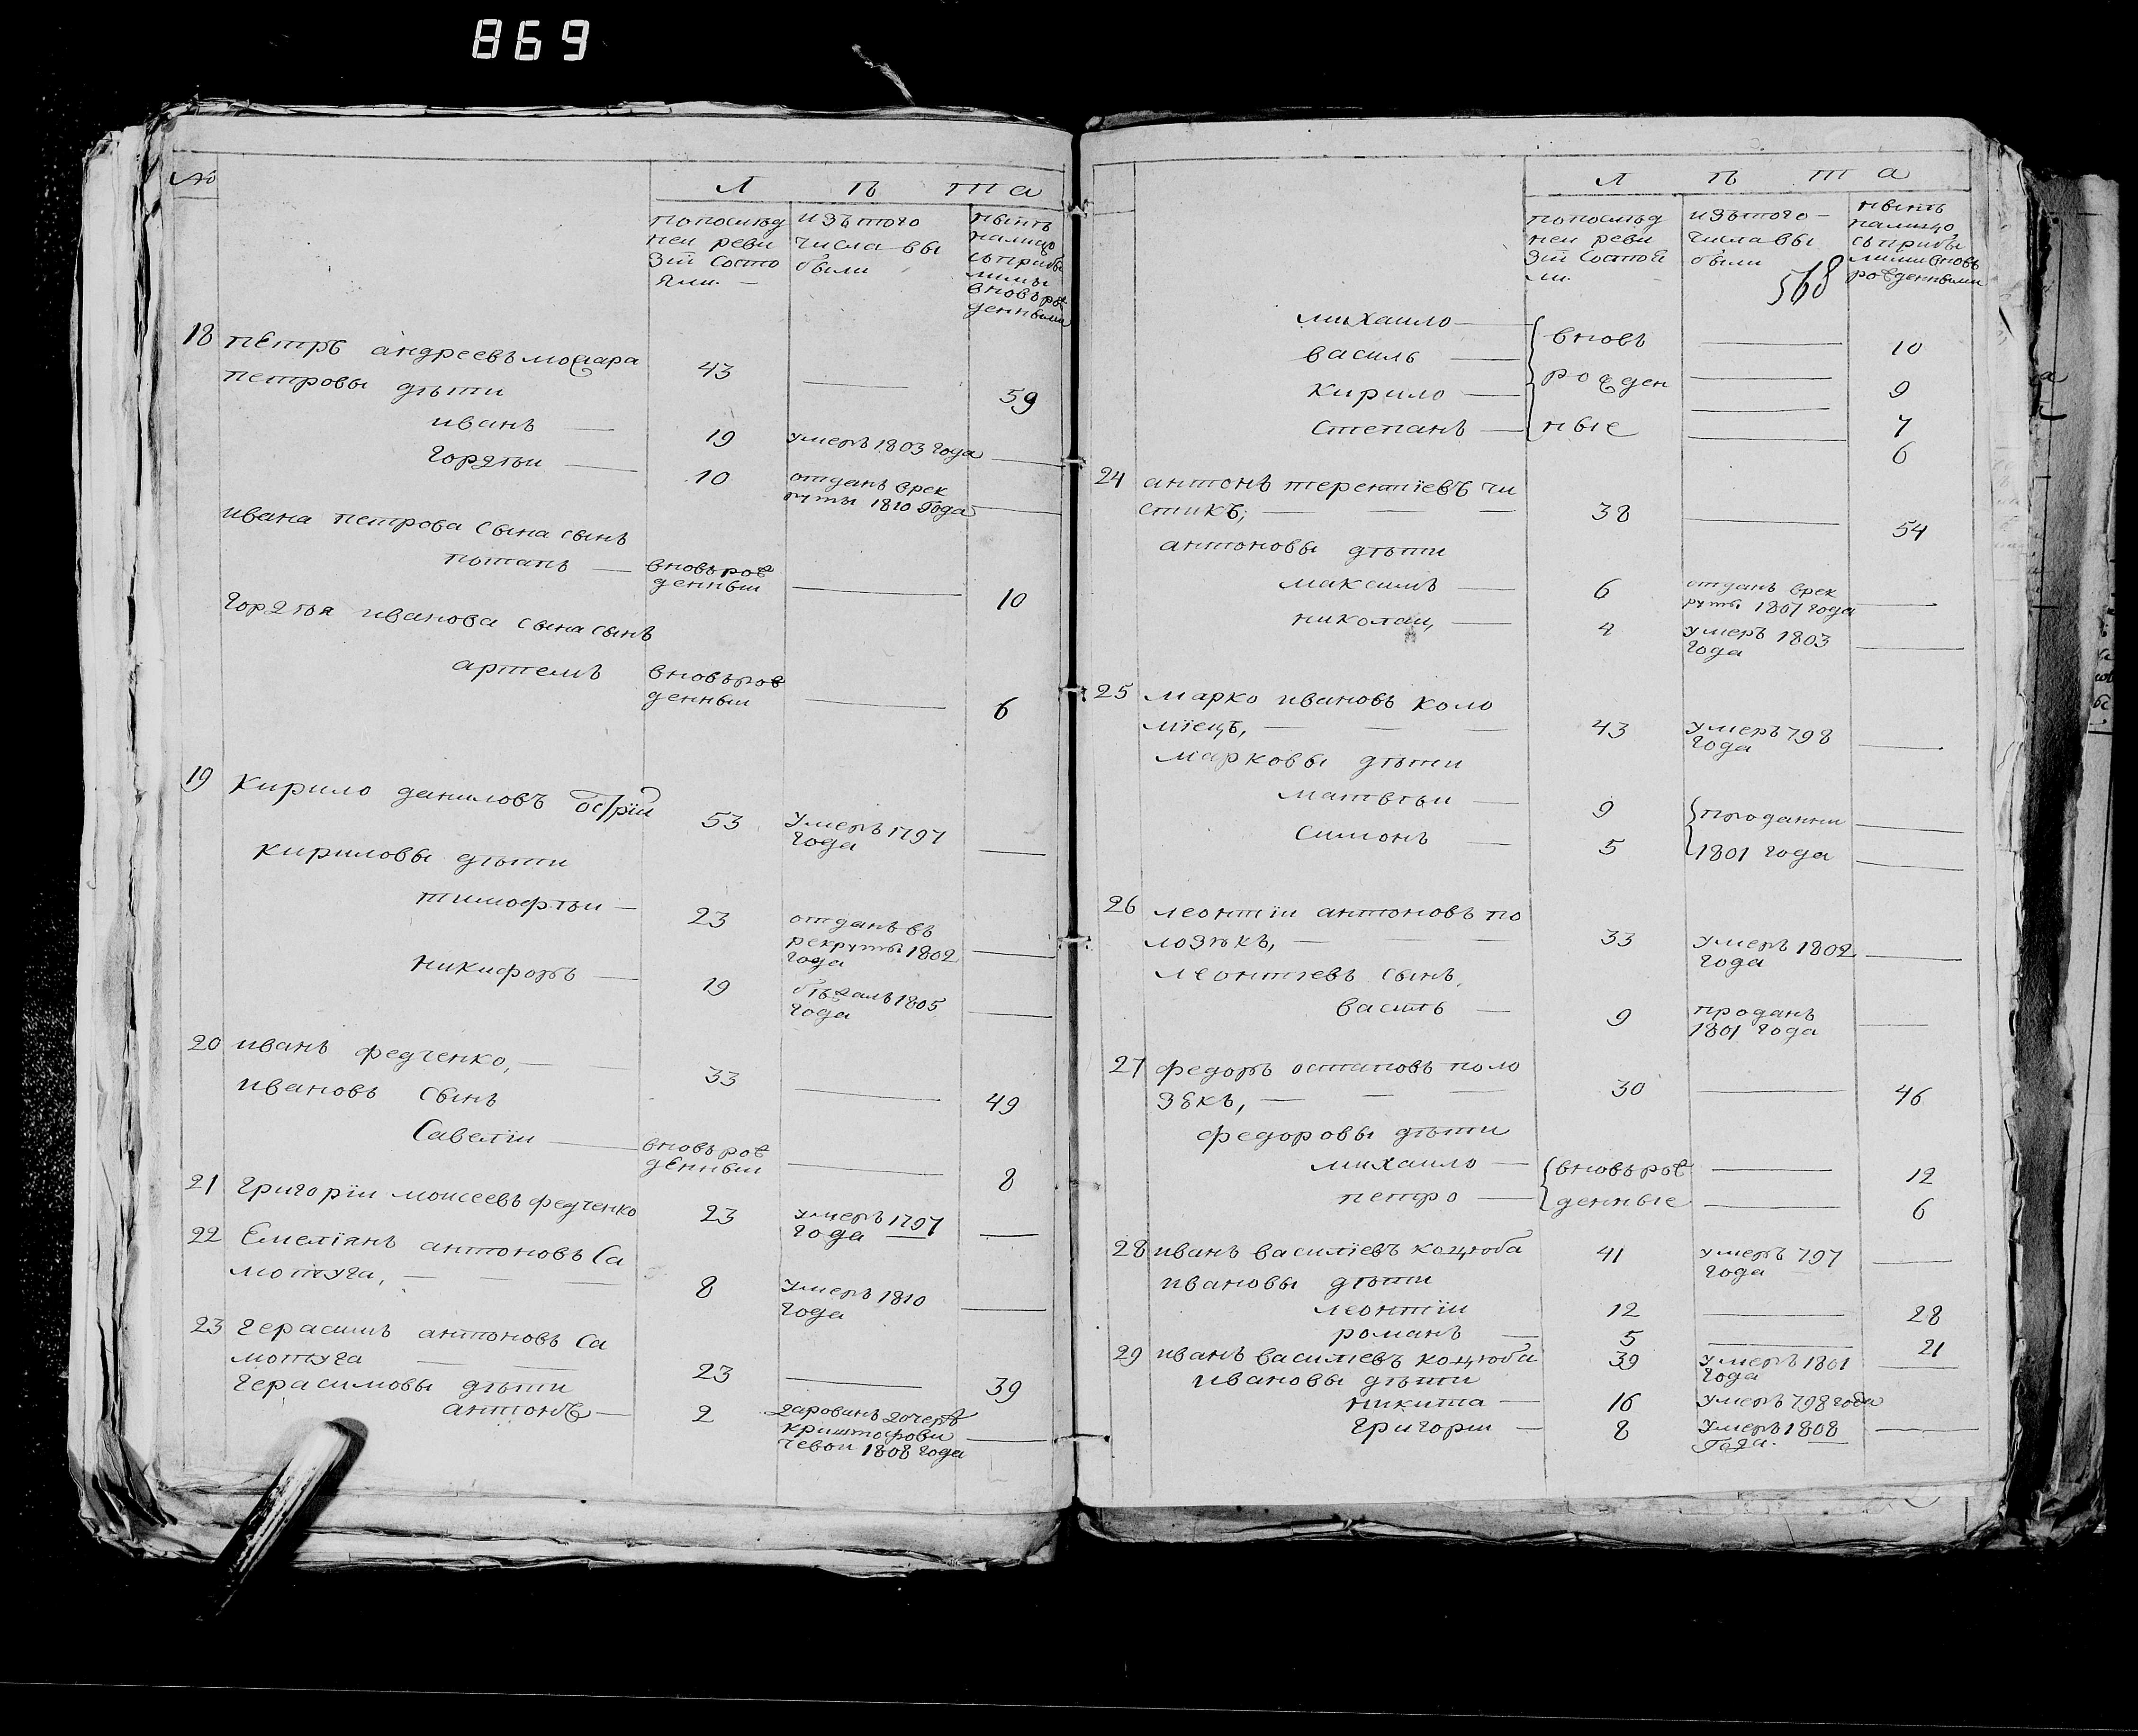 869
№
Л ѣ та
попослѣд
ней реви
зіи состо
яли.
изътого
числа вы
были
нынѣ
налицо
съприбы
лыми
вновьрож
денныма
18 петръ андреевъ моцара 43 59
петровы дѣти
иванъ 19 умеръ 1803 года
гордѣй 10 отданъ врек
руты 1810 Года
ивана петрова сына сынъ
потапъ вновьрож
денный 10
гордѣя иванова сына сынъ
артемъ вновьрож
денный 6
19 кирило даниловъ острій 53 умеръ 1797
года
кириловы дѣти
тимофѣй 23 отданъ въ
рекруты 1802
года
никифоръ 19 бѣжалъ 1805
года
20 иванъ федченко, 33 49
ивановъ сынъ
савелій вновьрож
денный 8
21 григорій моисеевъ федченко 23 умеръ 1797
года
22 Емеліянъ антоновъ Са
мотуга, 8 умеръ 1810
года
23 герасимъ антоновъ Са
мотуга 23 39
герасимовы дѣти
антонъ 2 дарованъ дочерѣ
криштофови
чевой 1808 года
Л ѣ т а
попослѣд
ней реви
зіи состоя
ли.
изътого
числа вы
были
568
нынѣ
налицо
съприбы
лыми вновь
рожденными
михаило вновь 10
василь рожден 9
кирило 7
степанъ ные 6
24 антонъ терентіевъ чи
стикъ, 38 54
антоновы дѣти
максимъ 6 отданъ врек
руты 1807 года
николай, 4 умеръ 1803
года
25 марко ивановъ коло
міецъ, 43 умеръ 798
года
марковы дѣти
матвѣй 9 проданни
симонъ 5 1801 года
26 леонтій антоновъ по
лозѣкъ, 33 умеръ 1802
года
леонтіевъ сынъ,
василь 9 проданъ
1801 года
27 федоръ остаповъ поло
зѣкъ, 30 46
федоровы дѣти
михаило вновьрож 12
петро денные 6
28 иванъ василіевъ коцюба 41 умеръ 797
года
ивановы дѣти
леонтій 12 28
романъ 5 21
29 иванъ василіевъ коцюба 39 умеръ 1801
года
ивановы дѣти
никита 16 умеръ 798 года
григорій 8 умеръ 1808
Года.